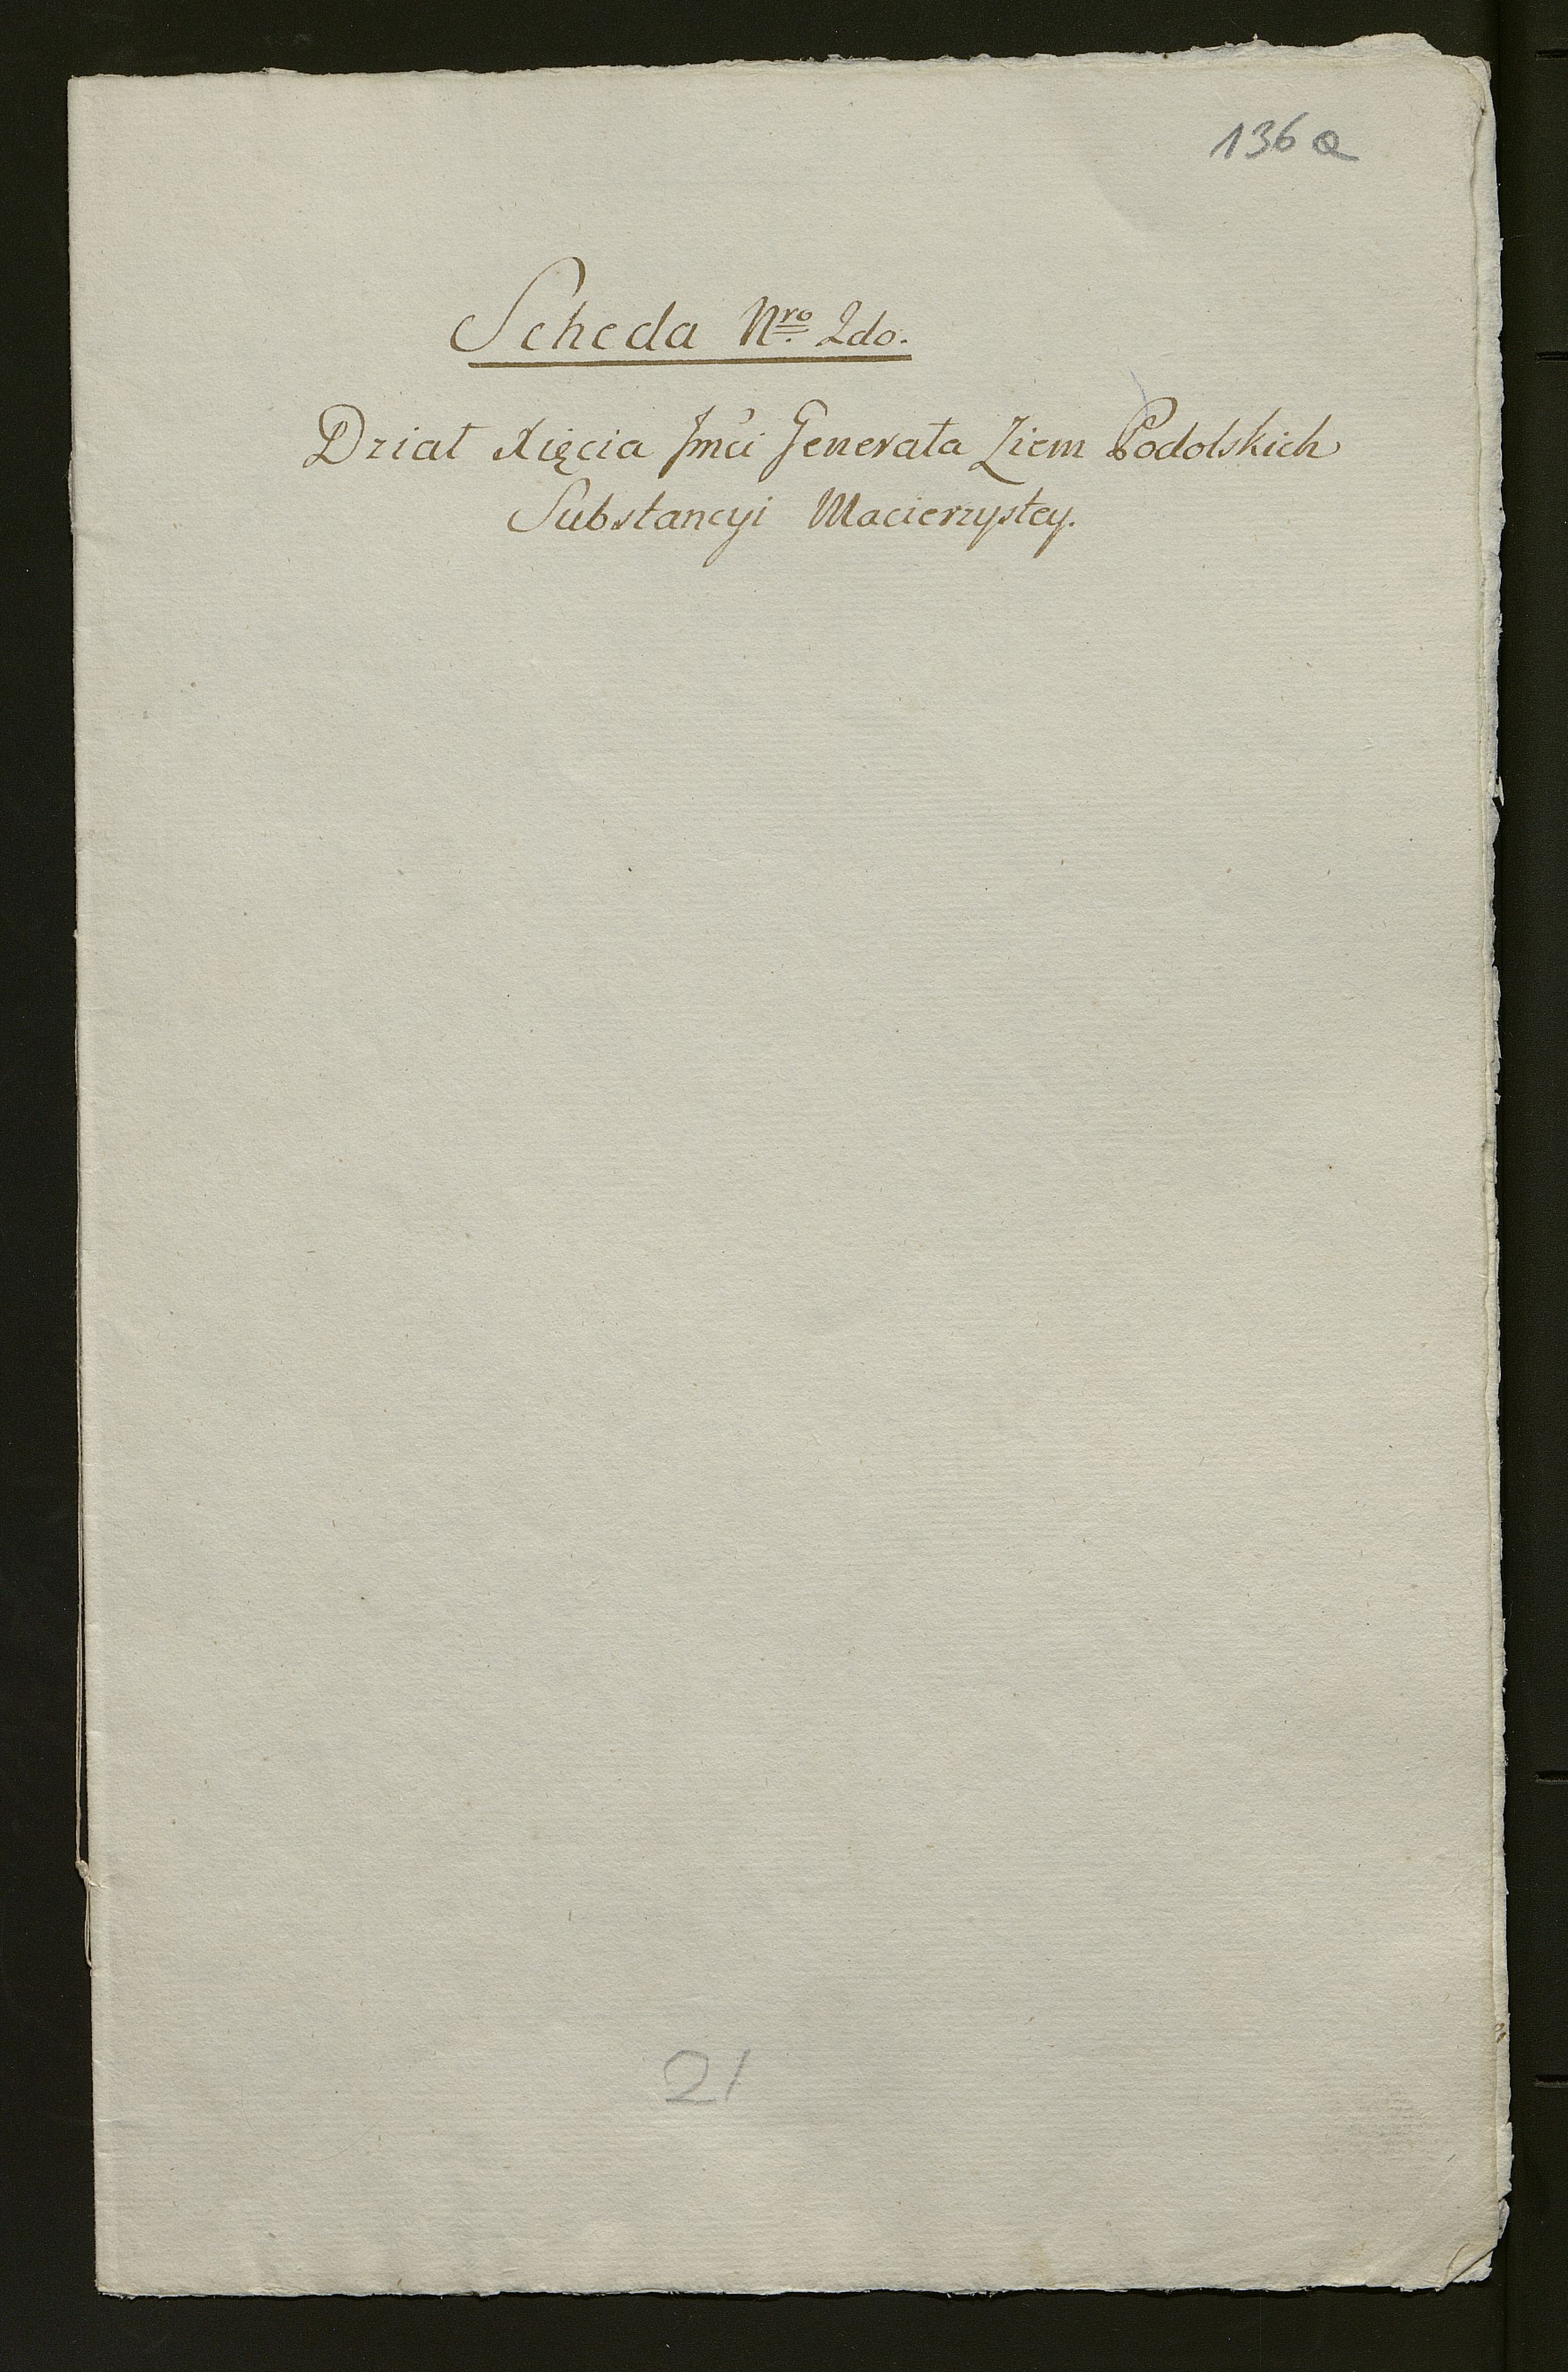 136a
Scheda Nro. 2do.
Dział Xięcia Jmći Generała Ziem Podolskich
Substancyi Macierzystey.
21